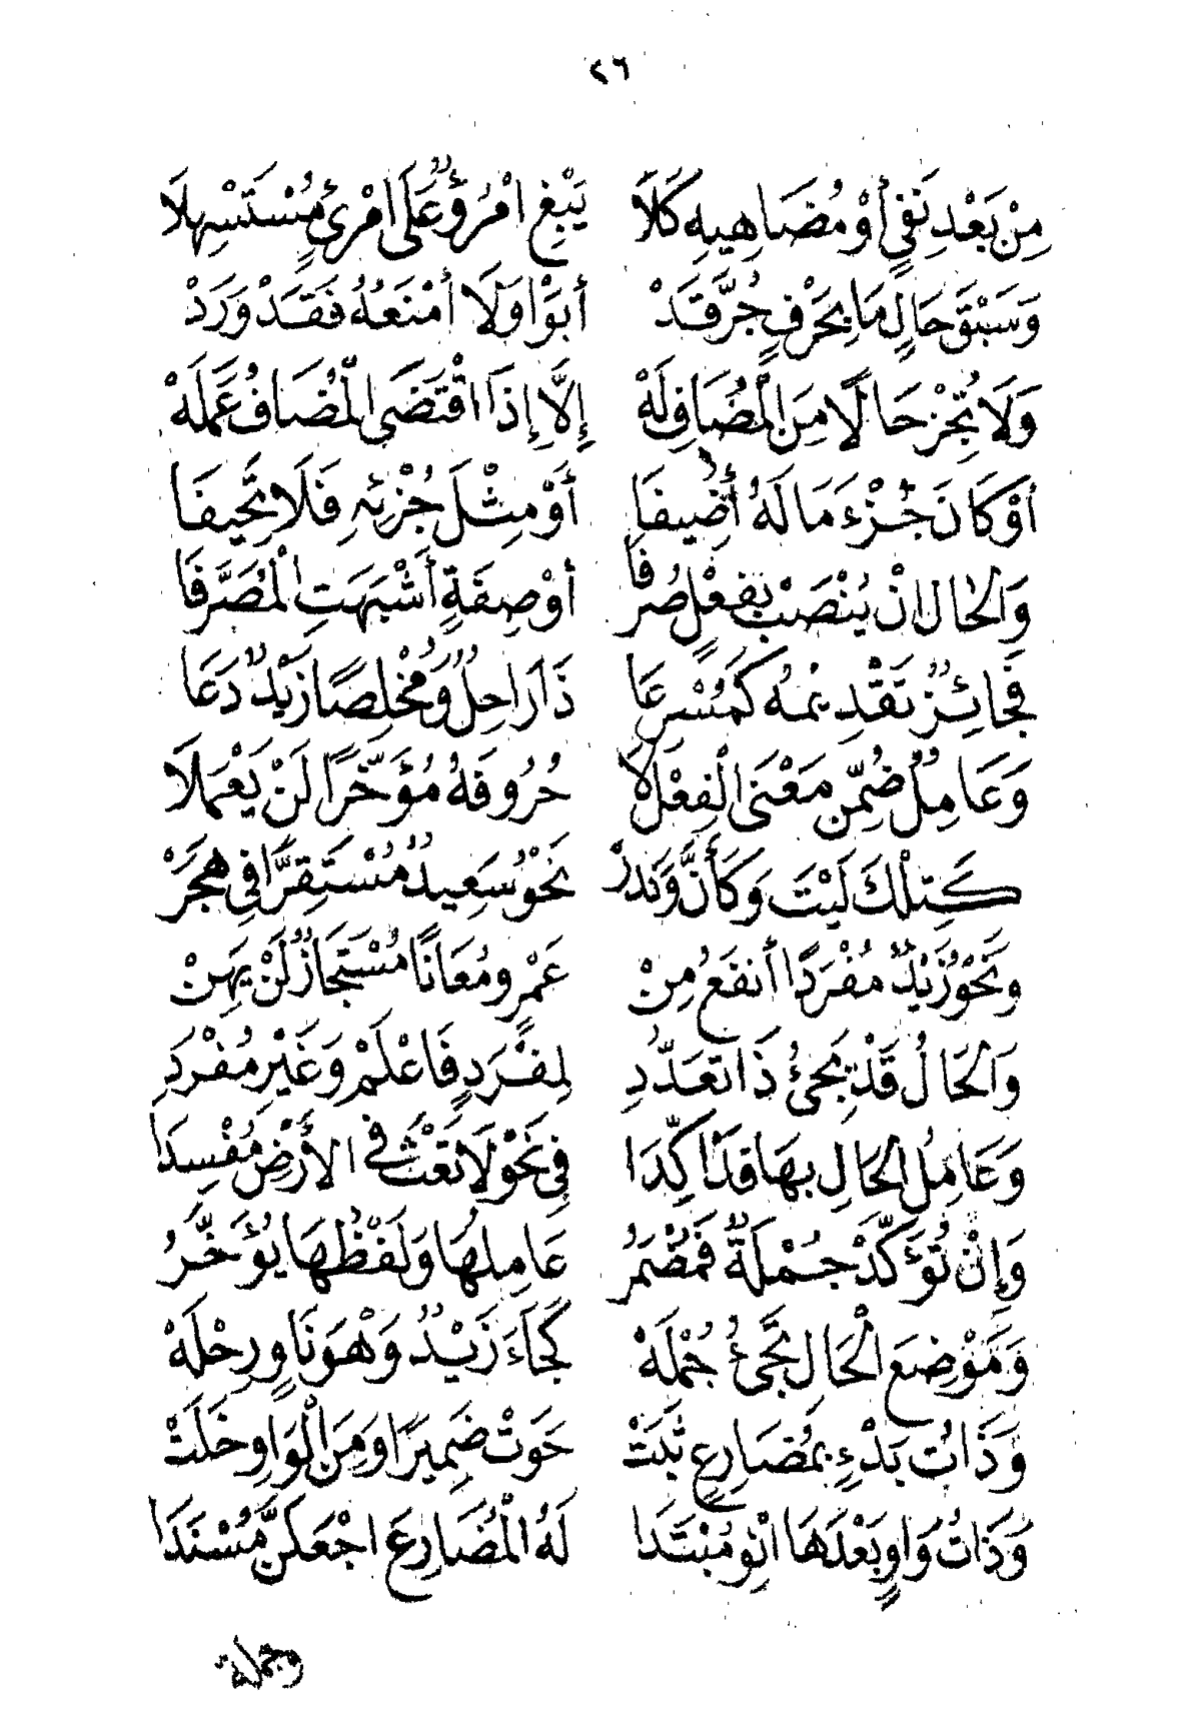 ٢٦
مِنْ بَعْدِ نَفْيٍ أَوْ مُضَاهِيهِ كَلَا يَبْغِ امْرُؤٌ عَلَى امْرِئٍ مُسْتَسْهِلَا
وَسَبْقَ حَالٍ مَا بِحَرْفٍ جُرَّ قَدْ أَبَوْا وَلَا أَمْنَعُهُ فَقَدْ وَرَدْ
وَلَا تُجِزْ حَالًا مِنَ الْمُضَافِ لَهْ إِلَّا إِذَا اقْتَضَى الْمُضَافُ عَمَلَهْ
أَوْ كَانَ جُزْءَ مَا لَهُ أُضِيفَا أَوْ مِثْلَ جُزْئِهِ فَلَا تَحِيفَا
وَالْحَالُ إِنْ يُنْصَبْ بِفِعْلٍ صُرِّفَا أَوْ صِفَةٍ أَشْبَهَتِ الْمُصَرَّفَا
فَجَائِزٌ تَقْدِيمُهُ كَمُسْرِعَا ذَا رَاحِلٌ وَمُخْلِصًا زَيْدٌ دَعَا
وَعَامِلٌ ضُمِّنَ مَعْنَى الْفِعْلِ لَا حُرُوفَهُ مُؤَخَّرًا لَنْ يَعْمَلَا
كَتِلْكَ لَيْتَ وَكَأَنَّ وَنَدَرْ نَحْوُ سَعِيدٌ مُسْتَقِرًّا فِي هَجَرْ
وَنَحْوُ زَيْدٌ مُفْرَدًا أَنْفَعُ مِنْ عَمْرٍو مُعَانًا مُسْتَجَازٌ لَنْ يَهِنْ
وَالْحَالُ قَدْ يَجِئُ ذَا تَعَدُّدِ لِمُفْرَدٍ فَاعْلَمْ وَغَيْرِ مُفْرَدِ
وَعَامِلُ الْحَالِ بِهَا قَدْ أُكِّدَا فِي نَحْوِ لَا تَعْثَ فِي الأَرْضِ مُفْسِدَا
وَإِنْ تُؤَكِّدْ جُمْلَةً فَمُضْمَرُ عَامِلُهَا وَلَفْظُهَا يُؤَخَّرُ
وَمَوْضِعَ الْحَالِ تَجِئُ جُمْلَهْ كَجَاءَ زَيْدٌ وَهْوَ نَاوٍ رِحْلَهْ
وَذَاتُ بَدْءٍ بِمُضَارِعٍ ثَبَتْ حَوَتْ ضَمِيرًا وَمِنَ الْوَاوِ خَلَتْ
وَذَاتُ وَاوٍ بَعْدَهَا انْوِ مُبْتَدَا لَهُ الْمُضَارِعَ اجْعَلَنَّ مُسْنَدَا
وجملة